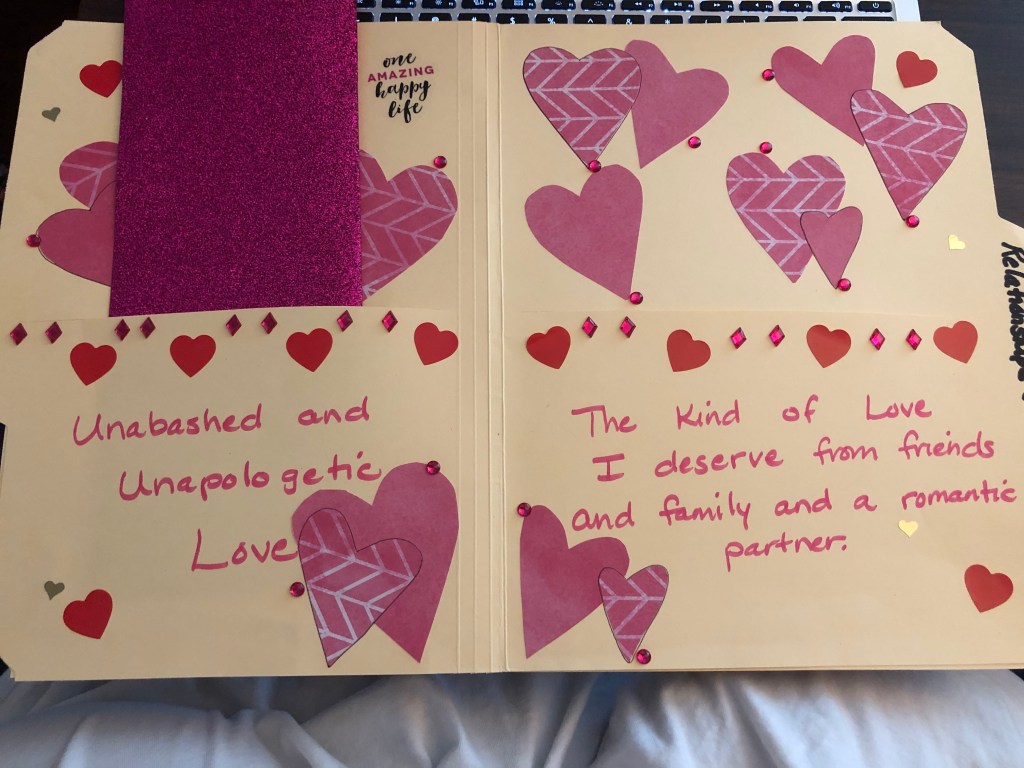 one
AMAZING
happy
life
Unabashed and
Unapologetic
Love
The Kind of Love
I deserve from friends
and family and a romantic
partner.
Relationships